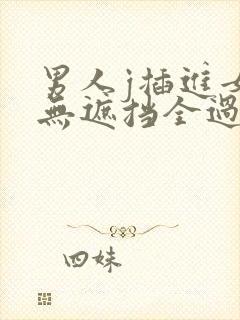 男人j插进女
無遮挡全過
四妹